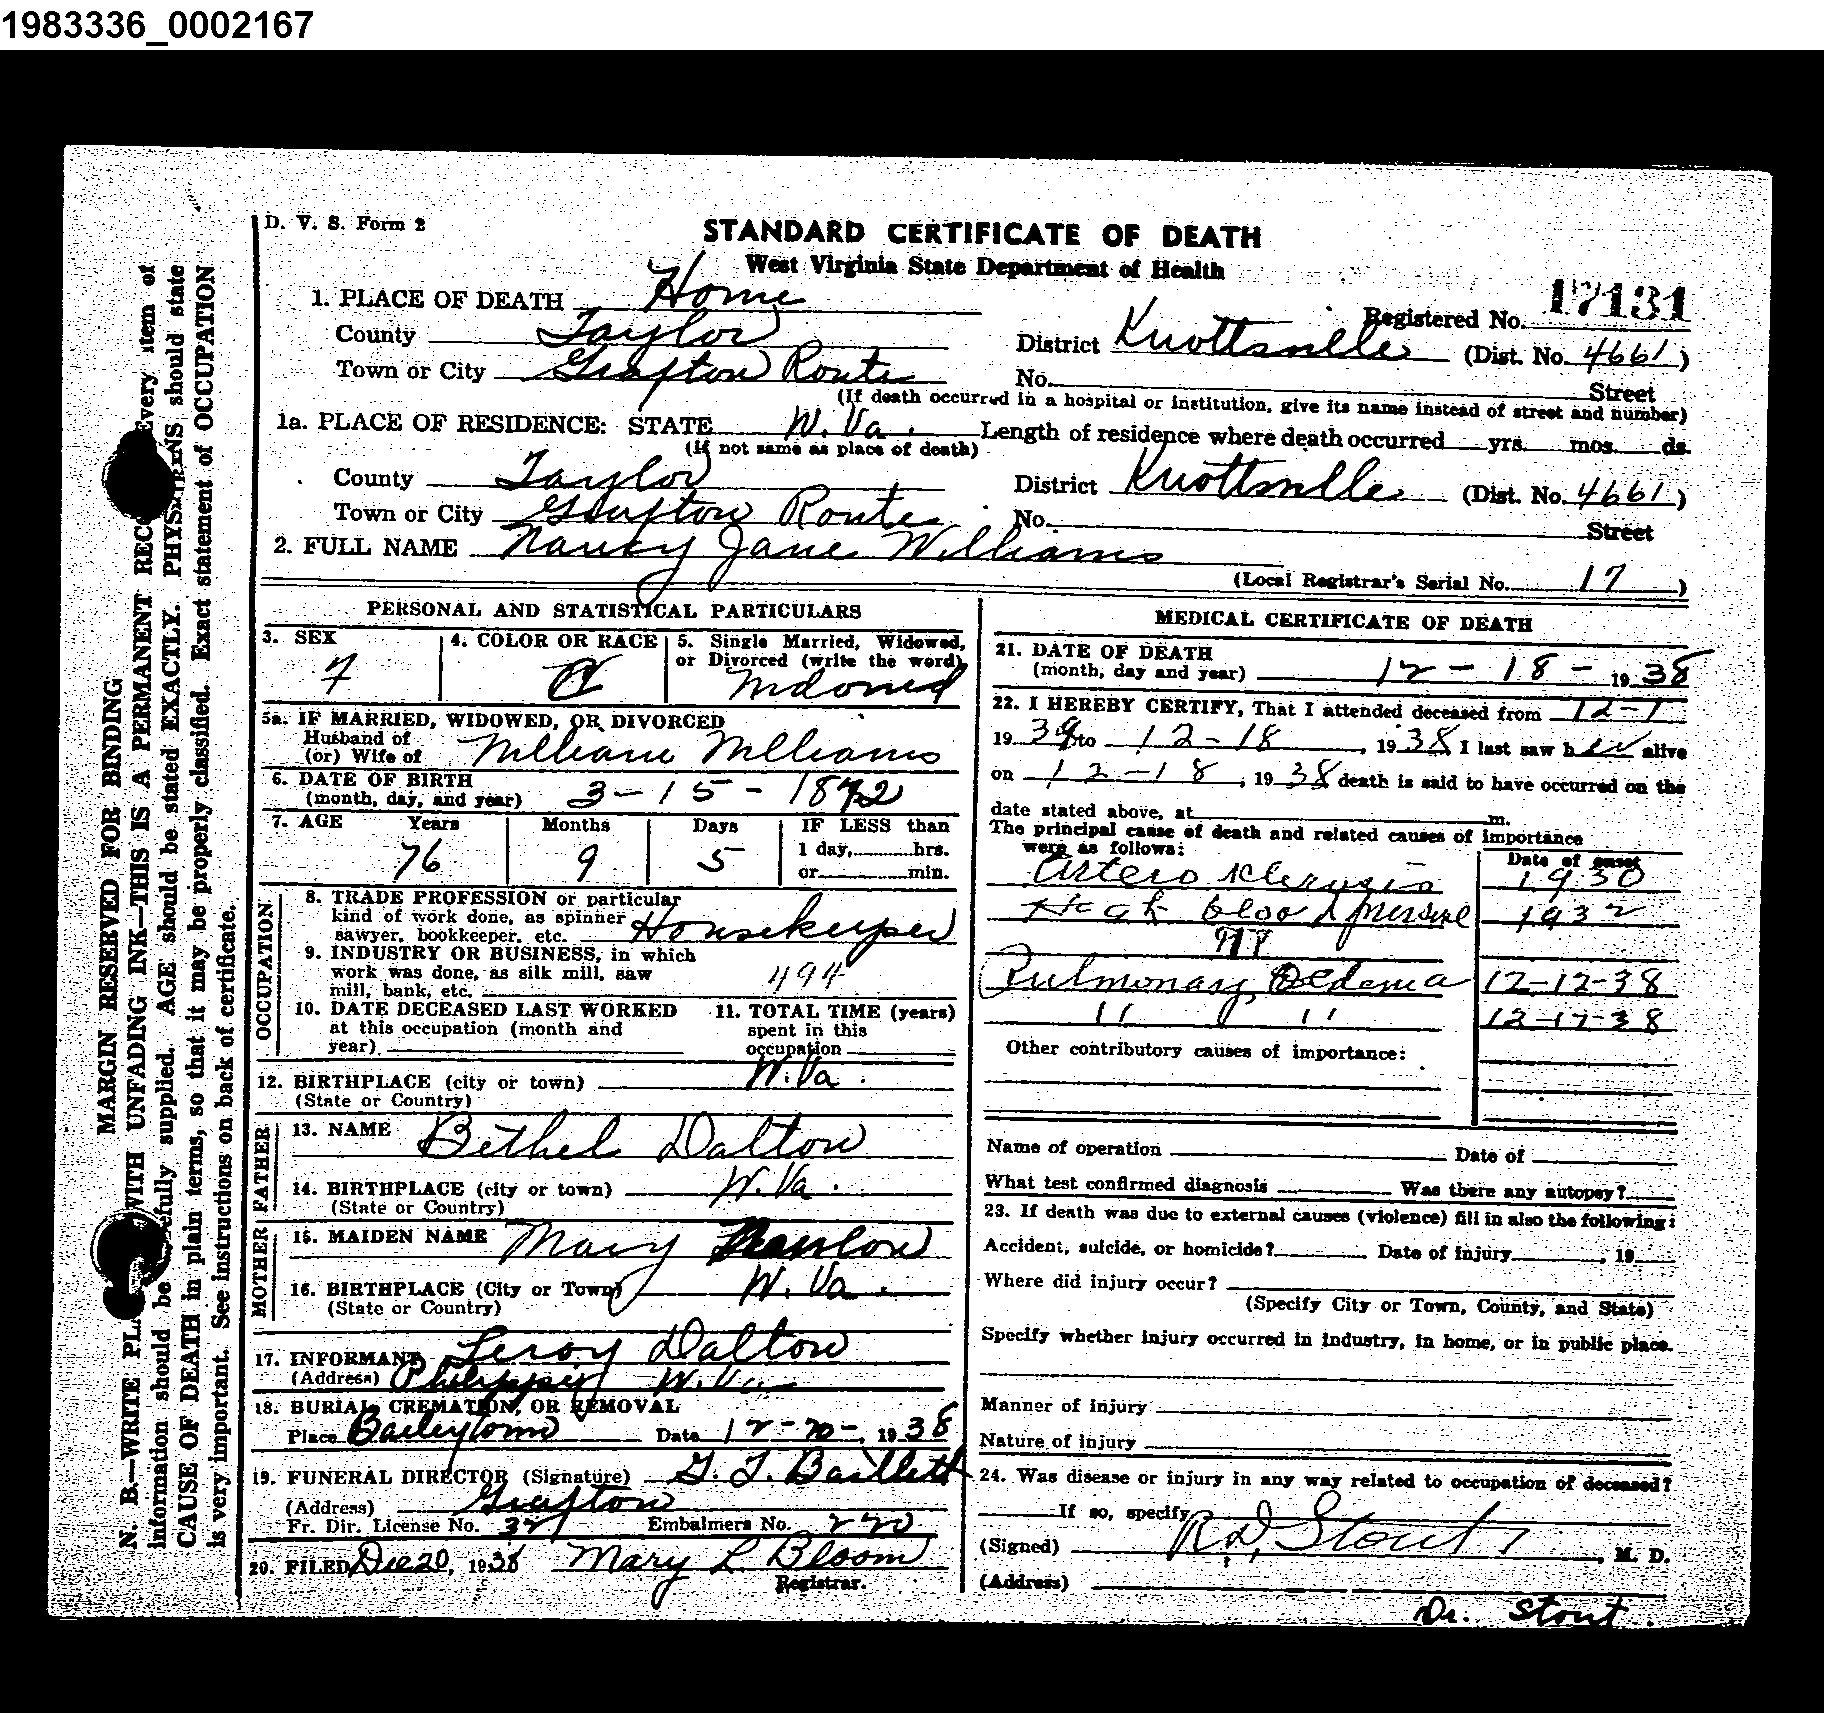 1983336_0002167
D. V. S. Form 2
STANDARD CERTIFICATE OF DEATH
West Virginia State Department of Health
1. PLACE OF DEATH Home
Registered No. 17131
County Taylor
District Knottsville (Dist. No. 4661)
Town or City Grafton Route
No. Street
(If death occurred in a hospital or institution, give its name instead of street and number)
1a. PLACE OF RESIDENCE: STATE W. Va. Length of residence where death occurred yrs. mos. ds.
(If not same as place of death)
County Taylor
District Knottsville (Dist. No. 4661)
Town or City Grafton Route
No. Street
2. FULL NAME Nancy Jane Williams
(Local Registrar's Serial No. 17)
PERSONAL AND STATISTICAL PARTICULARS
3. SEX F
4. COLOR OR RACE
5. Single Married, Widowed, or Divorced (write the word) Widowed
5a. IF MARRIED, WIDOWED, OR DIVORCED
Husband of
(or) Wife of William Williams
6. DATE OF BIRTH
(month, day, and year) 3-15-1872
7. AGE Years Months Days IF LESS than
76 9 5 1 day, hrs.
or min.
OCCUPATION
8. TRADE PROFESSION or particular
kind of work done, as spinner
sawyer, bookkeeper, etc. Housekeeper
9. INDUSTRY OR BUSINESS, in which
work was done, as silk mill, saw
mill, bank, etc. 494
10. DATE DECEASED LAST WORKED
at this occupation (month and
year)
11. TOTAL TIME (years)
spent in this
occupation
12. BIRTHPLACE (city or town) W. Va.
(State or Country)
FATHER
13. NAME Bethel Dalton
14. BIRTHPLACE (city or town) W. Va.
(State or Country)
MOTHER
15. MAIDEN NAME Mary
16. BIRTHPLACE (City or Town) W. Va.
(State or Country)
17. INFORMANT Leroy Dalton
(Address) Philippi W. Va.
18. BURIAL, CREMATION, OR REMOVAL
Place Baileytown Date 12-20-, 1938
19. FUNERAL DIRECTOR (Signature) G. T. Bartlett
(Address) Grafton
Fr. Dir. License No. 327 Embalmers No. 220
20. FILED Dec 20, 1938 Mary L. Bloom
Registrar.
MEDICAL CERTIFICATE OF DEATH
21. DATE OF DEATH
(month, day and year) 12-18-1938
22. I HEREBY CERTIFY, That I attended deceased from 12-1
19 to 12-18, 1938 I last saw her alive
on 12-18, 1938 death is said to have occurred on the
date stated above, at m.
The principal cause of death and related causes of importance
were as follows:
Date of onset
Artero sklerosis 1930
High blood pressure 1932
Pulmonary Oedema 12-12-38
" " 12-17-38
Other contributory causes of importance:
Name of operation Date of
What test confirmed diagnosis Was there any autopsy?
23. If death was due to external causes (violence) fill in also the following:
Accident, suicide, or homicide? Date of injury , 19
Where did injury occur?
(Specify City or Town, County, and State)
Specify whether injury occurred in industry, in home, or in public place.
Manner of injury
Nature of injury
24. Was disease or injury in any way related to occupation of deceased?
If so, specify
(Signed) R. D. Stout, M. D.
(Address)
Dr. Stout.
MARGIN RESERVED FOR BINDING
N. B.—WRITE WITH UNFADING INK—THIS IS A PERMANENT Every item of
information should be supplied. AGE should be stated EXACTLY. should state
CAUSE OF DEATH in plain terms, so that it may be properly classified. Exact statement of OCCUPATION
is very important. See instructions on back of certificate.